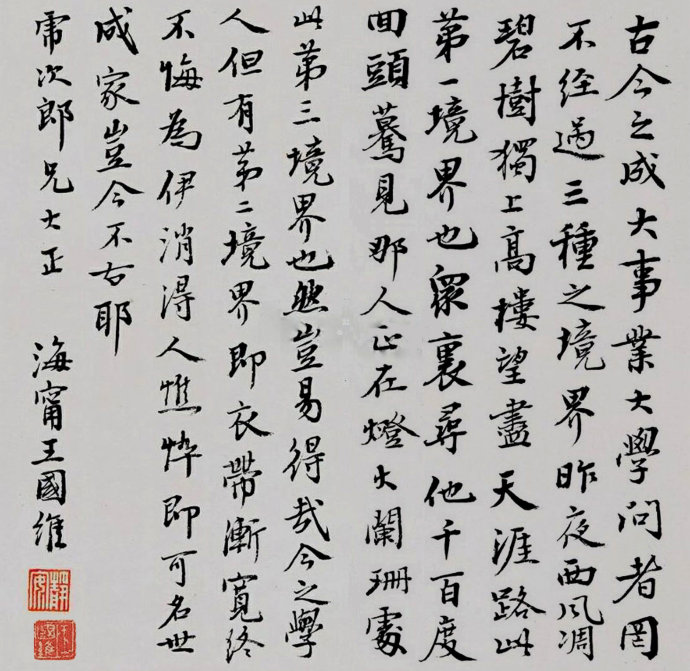 古今之成大事業大學問者罔
不经過三種之境界昨夜西风凋
碧樹獨上高樓望盡天涯路此
第一境界也眾裏尋他千百度
回頭驀見那人正在燈火闌珊處
此第三境界也然豈易得哉今之學
人但有第二境界即衣帶漸寬终
不悔為伊消得人憔悴即可名世
成家豈今不古耶
帚次郎兄大正
海甯王國維
靜安